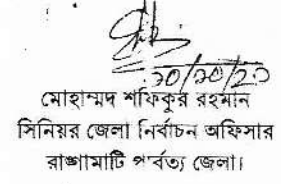 মোহাম্মদ শফিকুর রহমান
সিনিয়র জেলা নির্বাচন অফিসার
রাঙ্গামাটি পার্বত্য জেলা।